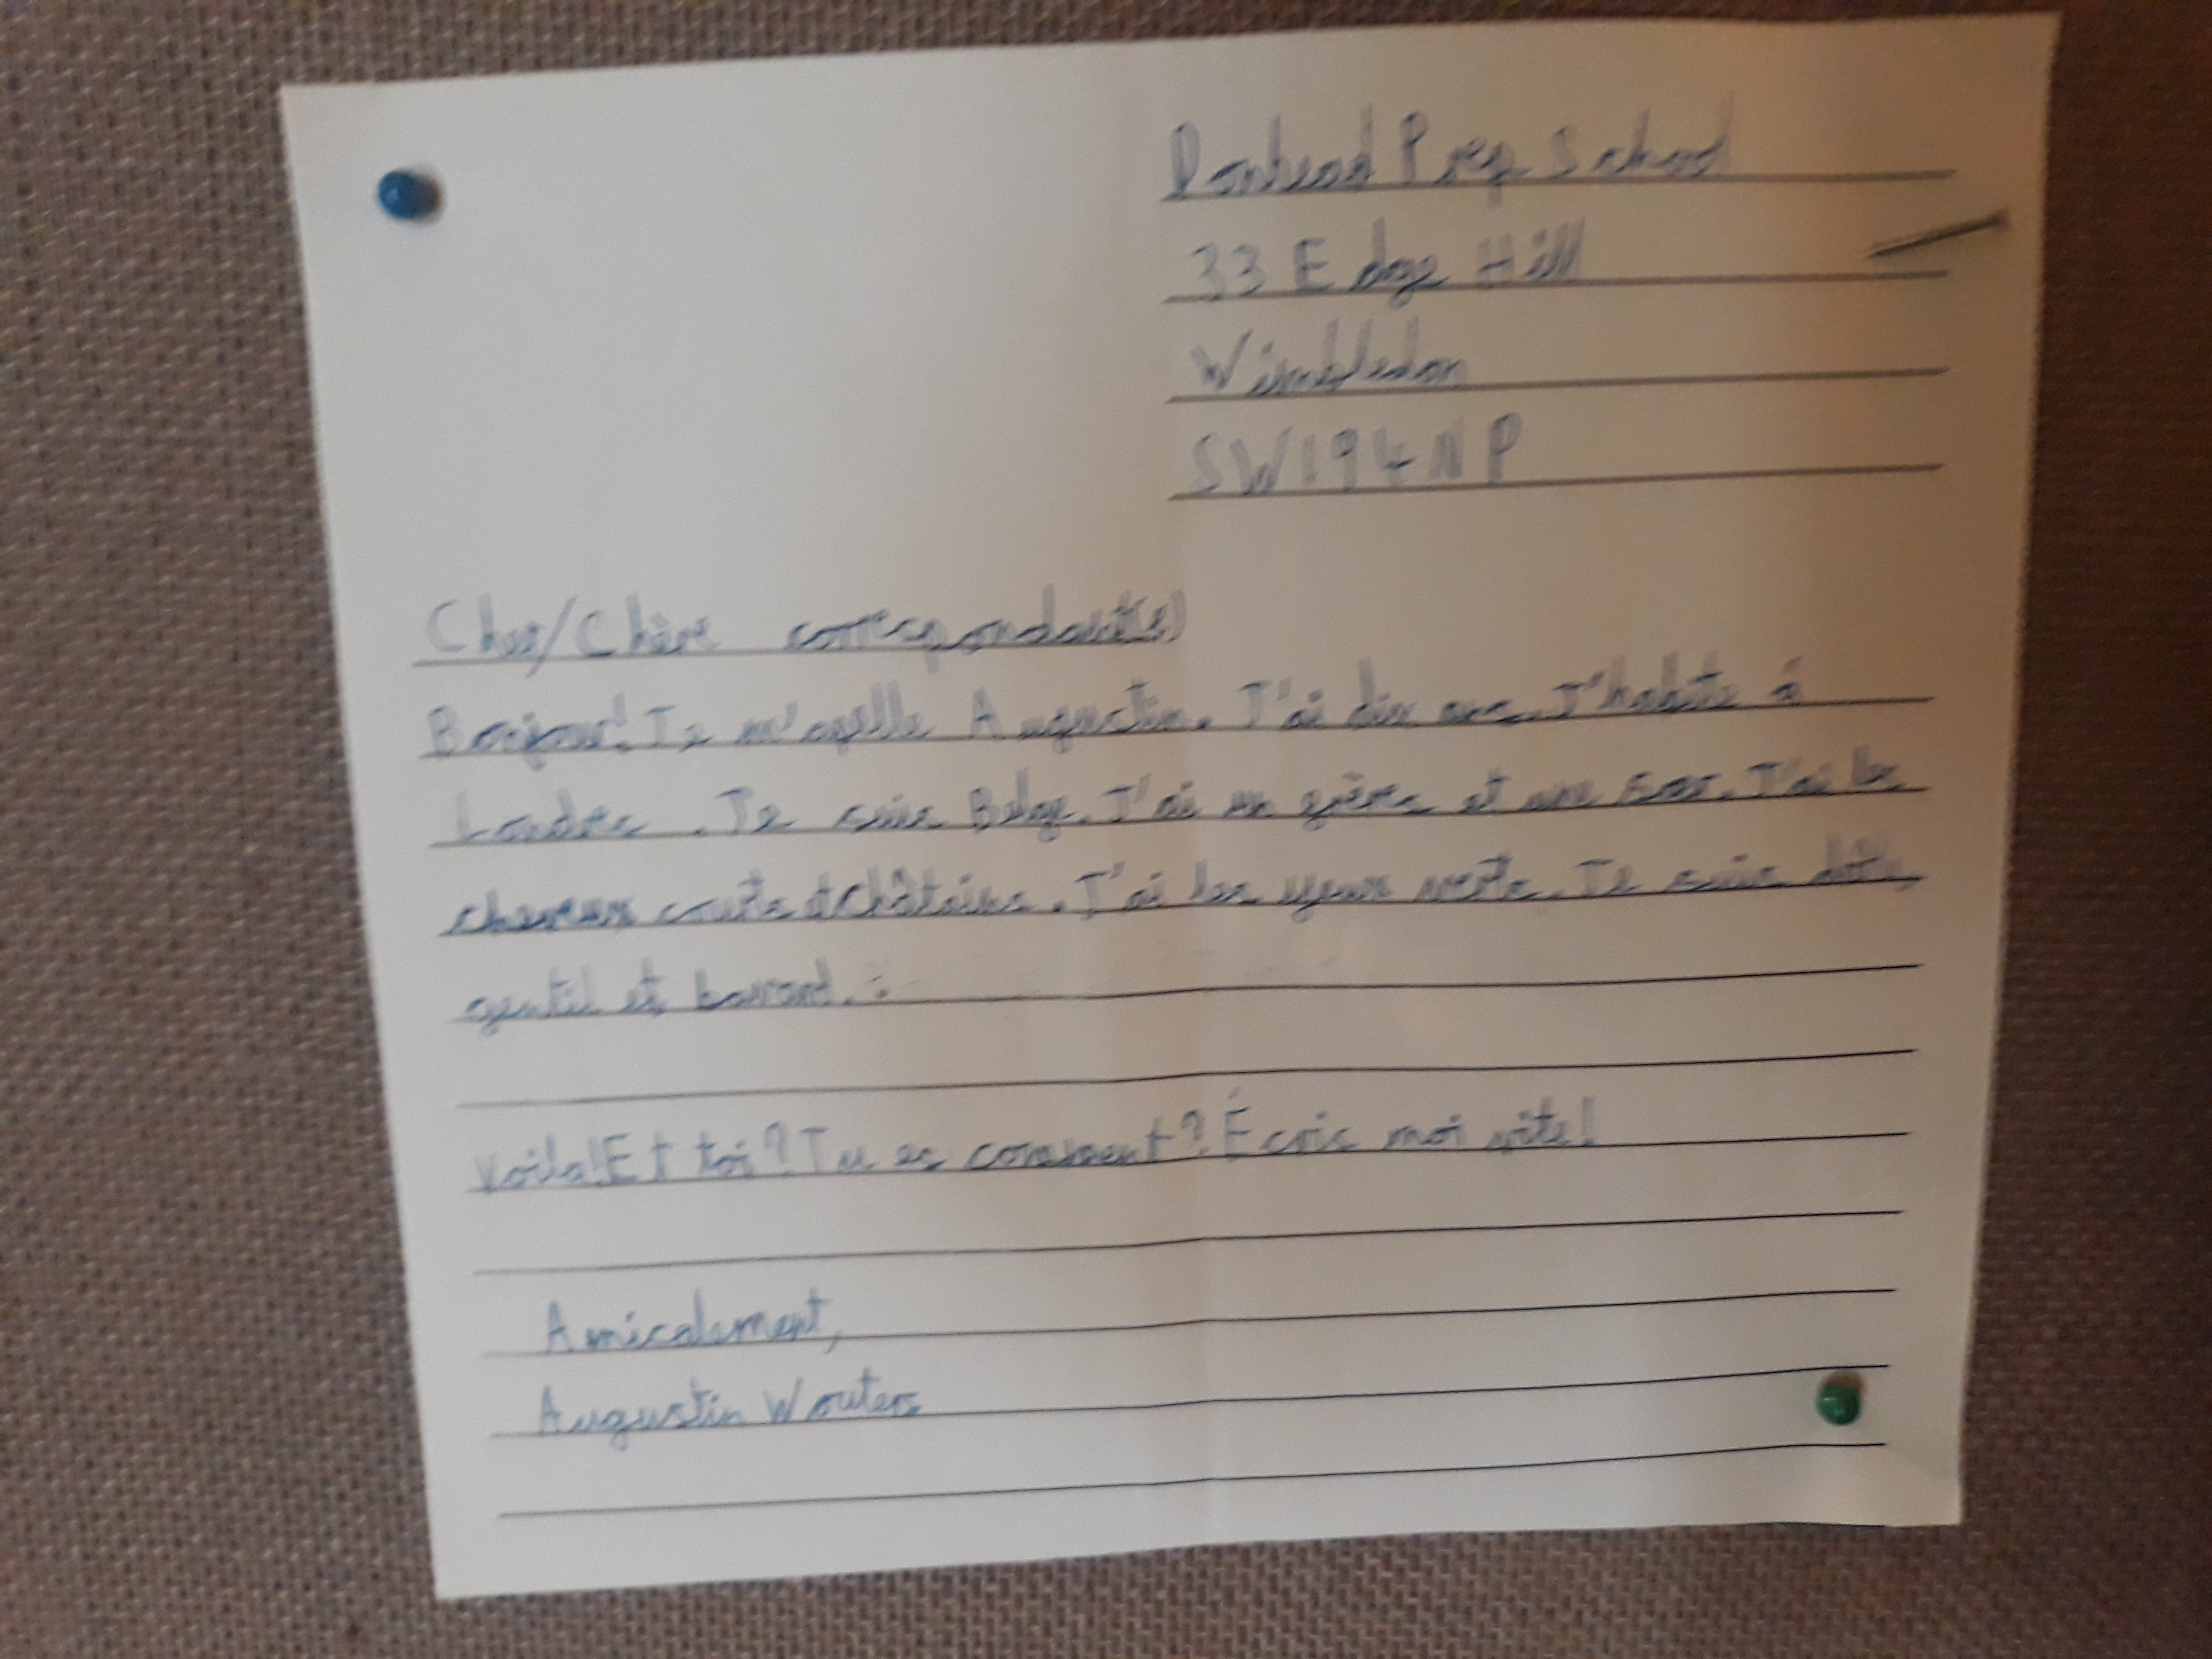 Donhead Prep School
33 Edge Hill
Wimbledon
SW194NP
Cher/Chère correspondant(e)
Bonjour! Je m'apelle Augustin. J'ai dix ans. J'habite à
Londres . Je suis Belge. J'ai un frère et une soeur. J'ai les
cheveux courts et châtains. J'ai les yeux verts. Je suis
gentil et bavard.
Voila! Et toi? Tu es comment? Écris moi vite!
Amicalement,
Augustin Wouters